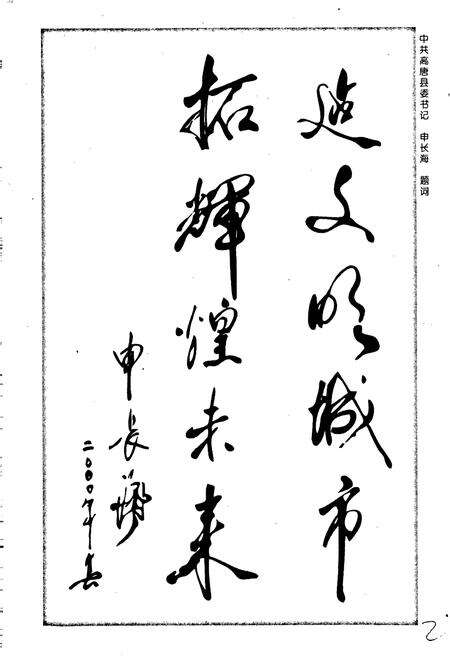 中共高唐县委书记 申长海 题词
建文明城市
拓輝煌未来
申长
二〇〇〇年
2